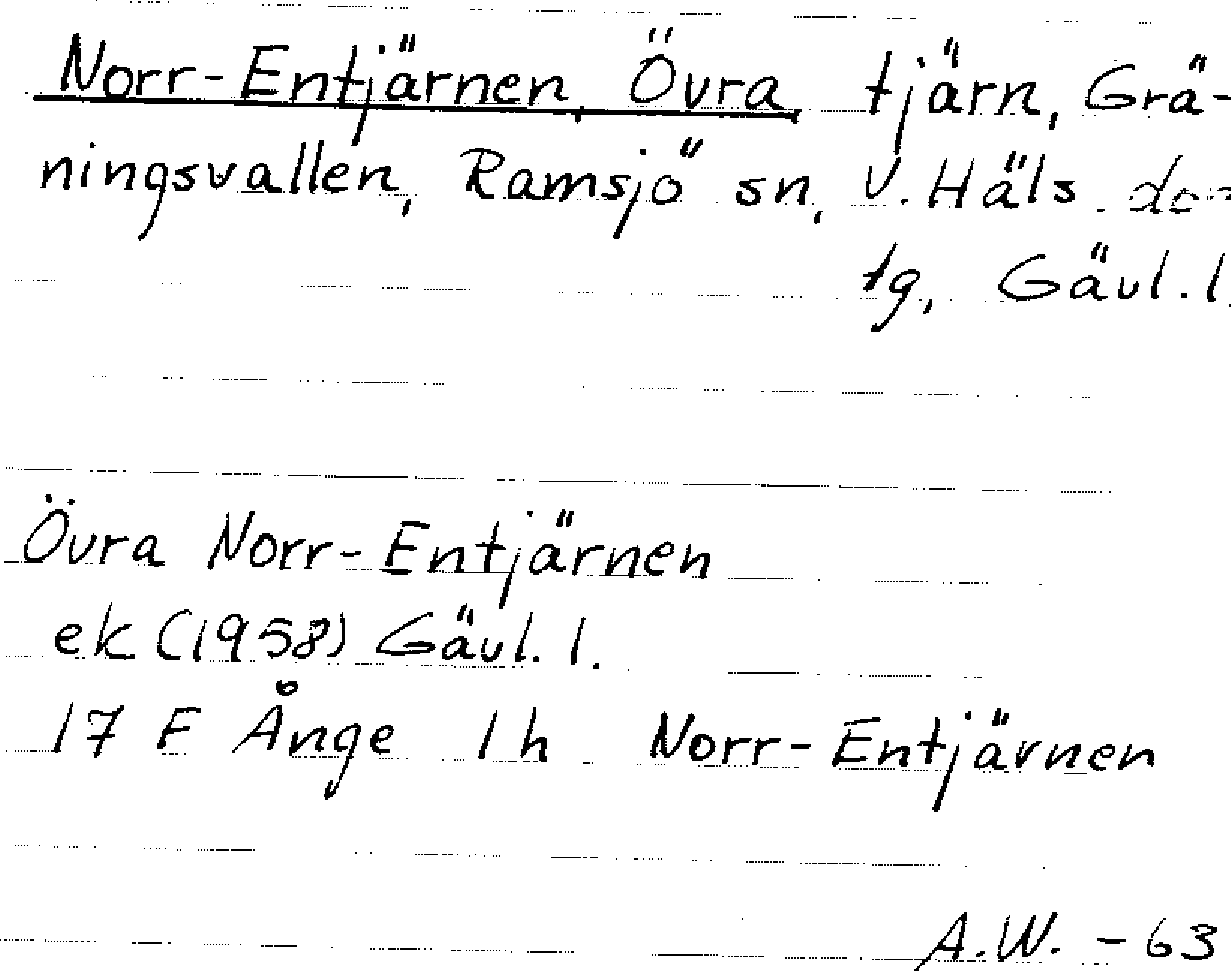 Norr-Entjärnen, Övra, tjärn, Grä-
ningsvallen, Ramsjö sn, V. Häls. dom
tg, Gävl. l.
Övra Norr-Entjärnen
ek (1958) Gävl. l.
17 F Ånge 1 h Norr-Entjärnen
A.W. - 63